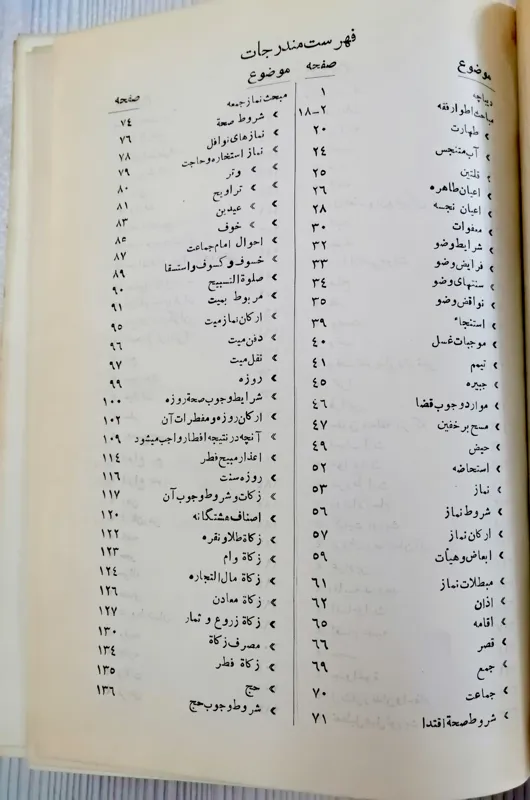 فهرست مندرجات
موضوع صفحه
دیباچه ۱
مباحث اطوار فقه ۲-۱۸
» طهارت ۲۰
» آب متنجس ۲۴
» قلتین ۲۵
» اعیان طاهره ۲۶
» اعیان نجسه ۲۸
» معفوات ۳۰
» شرایط وضو ۳۲
» فرایض وضو ۳۳
» سنتهای وضو ۳۴
» نواقض وضو ۳۵
» استنجاء ۳۹
» موجبات غسل ۴۰
» تیمم ۴۱
» جبیره ۴۵
» موارد وجوب قضا ۴۶
» مسح بر خفین ۴۷
» حیض ۴۹
» استحاضه ۵۲
» نماز ۵۳
» شروط نماز ۵۶
» ارکان نماز ۵۷
» ابعاض وهیأت ۵۹
» مبطلات نماز ۶۱
» اذان ۶۲
» اقامه ۶۵
» قصر ۶۶
» جمع ۶۹
» جماعت ۷۰
» شروط صحة اقتدا ۷۱
موضوع صفحه
مبحث نماز جمعه ۷۴
» شروط صحة ۷۶
» نمازهای نوافل ۷۸
» نماز استخاره و حاجت ۷۹
» » وتر ۸۰
» » تراویح ۸۱
» » عیدین ۸۳
» » خوف ۸۵
» احوال امام جماعت ۸۷
» خسوف و کسوف و استسقا ۸۹
» صلوة التسبیح ۹۰
» مربوط بمیت ۹۱
» ارکان نماز میت ۹۵
» دفن میت ۹۶
» نقل میت ۹۷
» روزه ۹۹
» شرایط وجوب صحة روزه ۱۰۰
» ارکان روزه و مفطرات آن ۱۰۲
» آنچه در نتیجه افطار واجب میشود ۱۰۹
» اعذار مبیح فطر ۱۱۴
» روزه سنت ۱۱۶
» زکات و شروط وجوب آن ۱۱۷
» اصناف هشتگانه ۱۲۰
» زکاة طلا و نقره ۱۲۲
» زکاة وام ۱۲۳
» زکاة مال التجاره ۱۲۴
» زکاة معادن ۱۲۶
» زکاة زروع و ثمار ۱۲۷
» مصرف زکاة ۱۳۰
» زکاة فطر ۱۳۴
» حج ۱۳۵
» شروط وجوب حج ۱۳۶